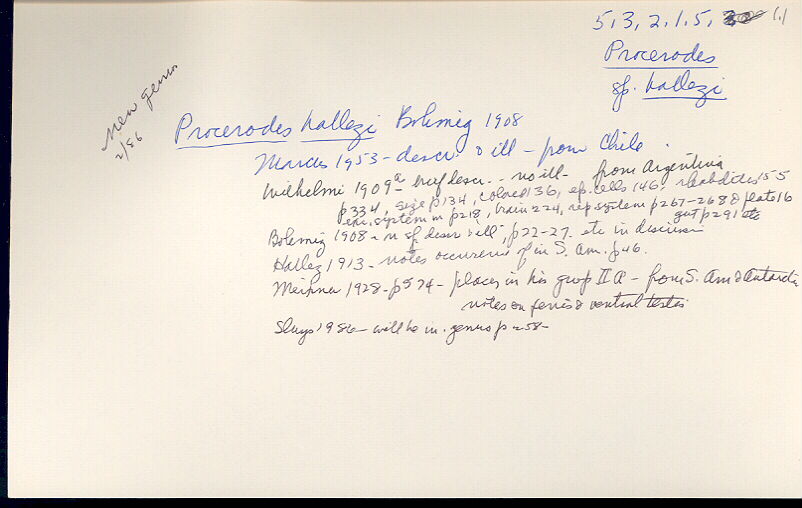 5, 3, 2, 1, 5, (.)
Procerodes
sp. hallezi
New genus
2/86
Procerodes hallezi Bohmig 1908
Marcus 1953 - descr. & ill - from Chile.
Wilhelmi 1909a - brief descr. - no ill - from Argentina
p334, size p134, colored 136, ep. cells 146, rhabdites 155
exc. system p218, brain 224, rep system p267-268 & plate 16
gut p291 etc
Bohmig 1908 - n sp. descr & ill, p22-27. etc in discussion
Hallez 1913 - notes occurrence of in S. Am. p46.
Meixner 1928 - p574 - places in his group II A - from S. Am & Antarctic
notes on penis & ventral testes
Sluys 1986 - will be n. genus p 258 -